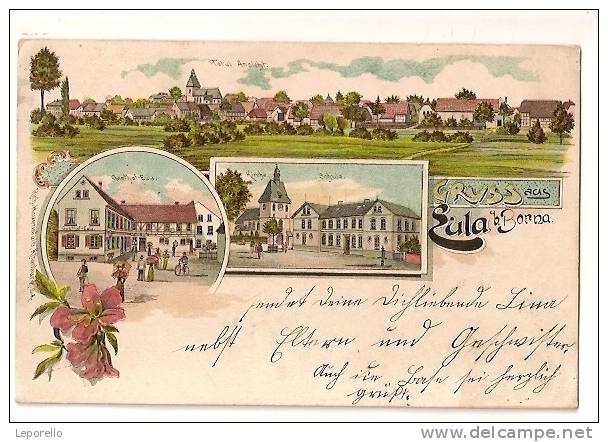 Total Ansicht.
Gasthof Eula.
Kirche Schule
GRUSS aus
Eula b/ Borna.
endet deine Dichliebende Lina
nebst Eltern und Geschwister.
Auch die Base sei herzlich
grüßt.
Leporello
delcampe.net